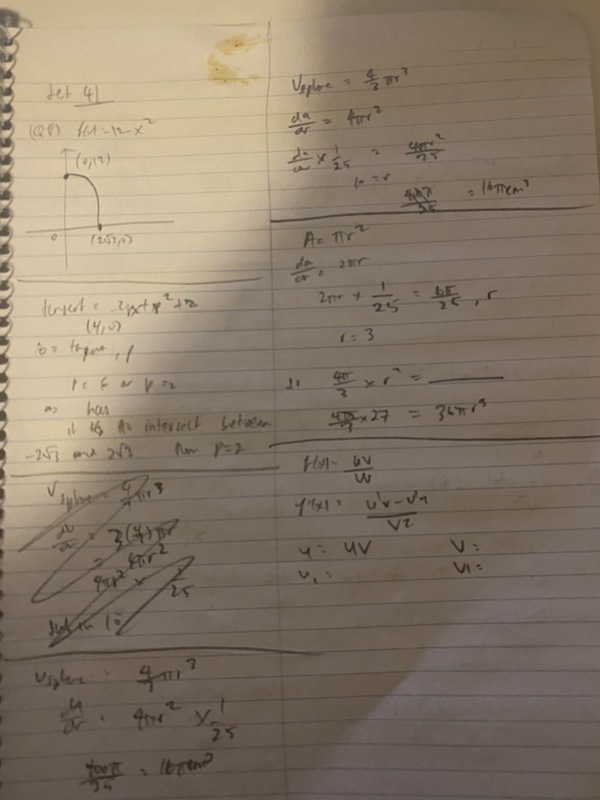 Set 41
f(x) = 12 - x²
(0,12)
0
(2√3,0)
tangent = -2px + p² + 12
(4,0)
0 =
p = 6 or p = 2
as has
intercept between
-2√3 and 2√3 then p=2
V sphere = 4/3 πr³
= 3(4/3)πr
= 4πr²
4πr² ×
25
sub in 10
V sphere = 4/3 πr³
= 4πr² × 1/25
400π/25 = 16πcm³
V sphere = 4/3 πr³
da/dr = 4πr²
da/dr × 1/25 = 4πr²/25
10 = r
400π/25 = 16πcm³
A = πr²
da/dr = 2πr
2πr × 1/25 = 6π/25, r
r = 3
4π/3 × r³ =
4π/3 × 27 = 36πr³
f(x) = uv/w
f'(x) = u'v - v'u / v²
u = uv
v =
u₁ =
v₁ =